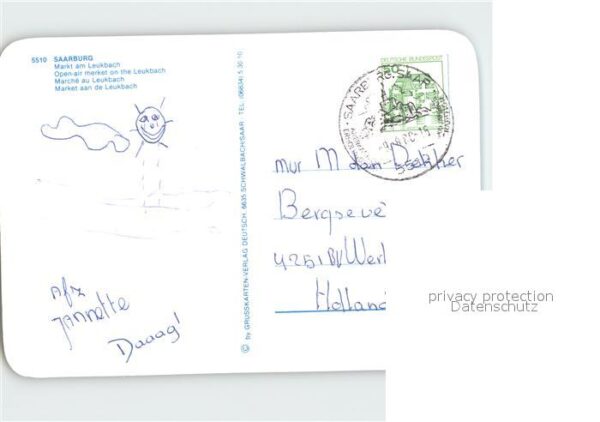 5510 SAARBURG
Markt am Leukbach
Open-air merket on the Leukbach
Marché au Leukbach
Market aan de Leukbach
© by GRUSSKARTEN-VERLAG DEUTSCH, 6635 SCHWALBACH/SAAR TEL. (06834) 5 30 10
DEUTSCHE BUNDESPOST
SAARBURG, SAAR
Bergseve
4251 BV Werk
Holland
Afz
Jannette
Daaag!
privacy protection
Datenschutz